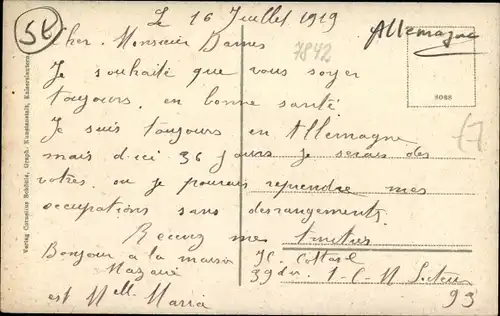 Le 16 Juillet 1919
Allemagne
56
Cher Monsieur Dames
7842
Je souhaite que vous soyer
toujours en bonne santé
8088
Je suis toujours en Allemagne
mais d'ici 36 jours je serais des
votres ou je pourrais reprendre mes
occupations sans derrangements.
Recevez me
Bonjour a la maison
Mazaué
est Mell Maria
39 div. 1-C-M Secteur
93
Verlag Cornelius Schöhle, Graph. Kunstanstalt, Kaiserslautern